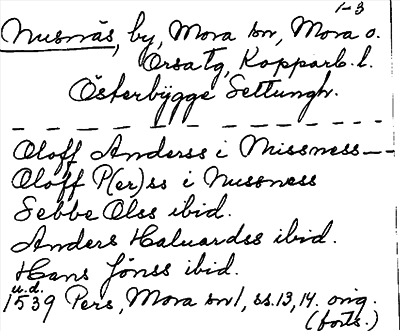 1-3
Nusnäs, by, Mora sn, Mora o.
Orsa tg, Kopparb. l.
Österbygge Settungh.
Oloff Anderss i Missness
Oloff P(er)ss i Nussness
Sebbe Olss ibid.
Anders Haluardss ibid.
Hans Jönss ibid.
u.d.
1539 Pers, Mora sn 1, ss. 13, 14. orig.
(forts.)